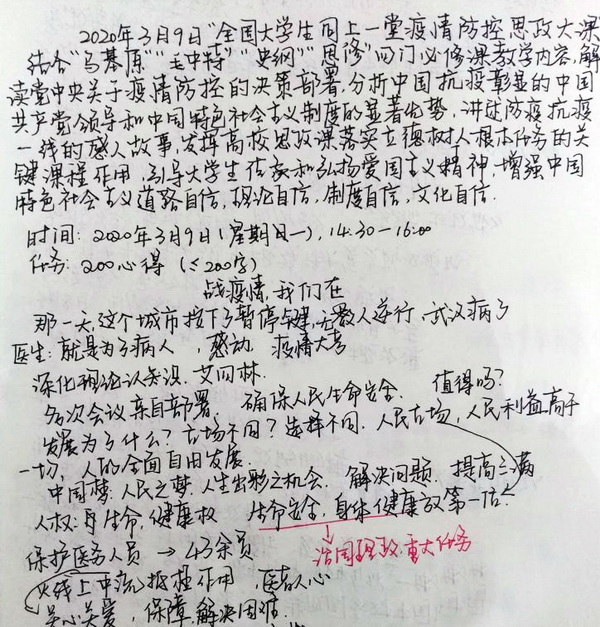 2020年3月9日"全国大学生同上一堂疫情防控思政大课"
结合"马基原""毛中特""史纲""思修"四门必修课教学内容,解
读党中央关于疫情防控的决策部署,分析中国抗疫彰显的中国
共产党领导和中国特色社会主义制度的显著优势,讲述防疫抗疫
一线的感人故事,发挥高校思政课落实立德树人根本任务的关
键课程作用,引导大学生传承和弘扬爱国主义精神,增强中国
特色社会主义道路自信,理论自信,制度自信,文化自信.
时间: 2020年3月9日(星期一),14:30—16:00
任务: 200心得 (≤200字)
战疫情,我们在
那一天,这个城市按下了暂停键,无数人逆行,武汉病了
医生:就是为了病人 , 感动 疫情大考
深化理论认知识,艾四林.
多次会议亲自部署, 确保人民生命安全. 值得吗?
发展为了什么? 立场不同? 选择不同. 人民立场,人民利益高于
一切, 人的全面自由发展.
中国梦:人民之梦,人生出彩之机会. 解决问题. 提高之满
人权: 生命,健康权 生命安全,身体健康放第一位
保护医务人员 → 43余员 治国理政重大任务
火线上中流砥柱作用 医者仁心
关心关爱, 保障,解决困难.